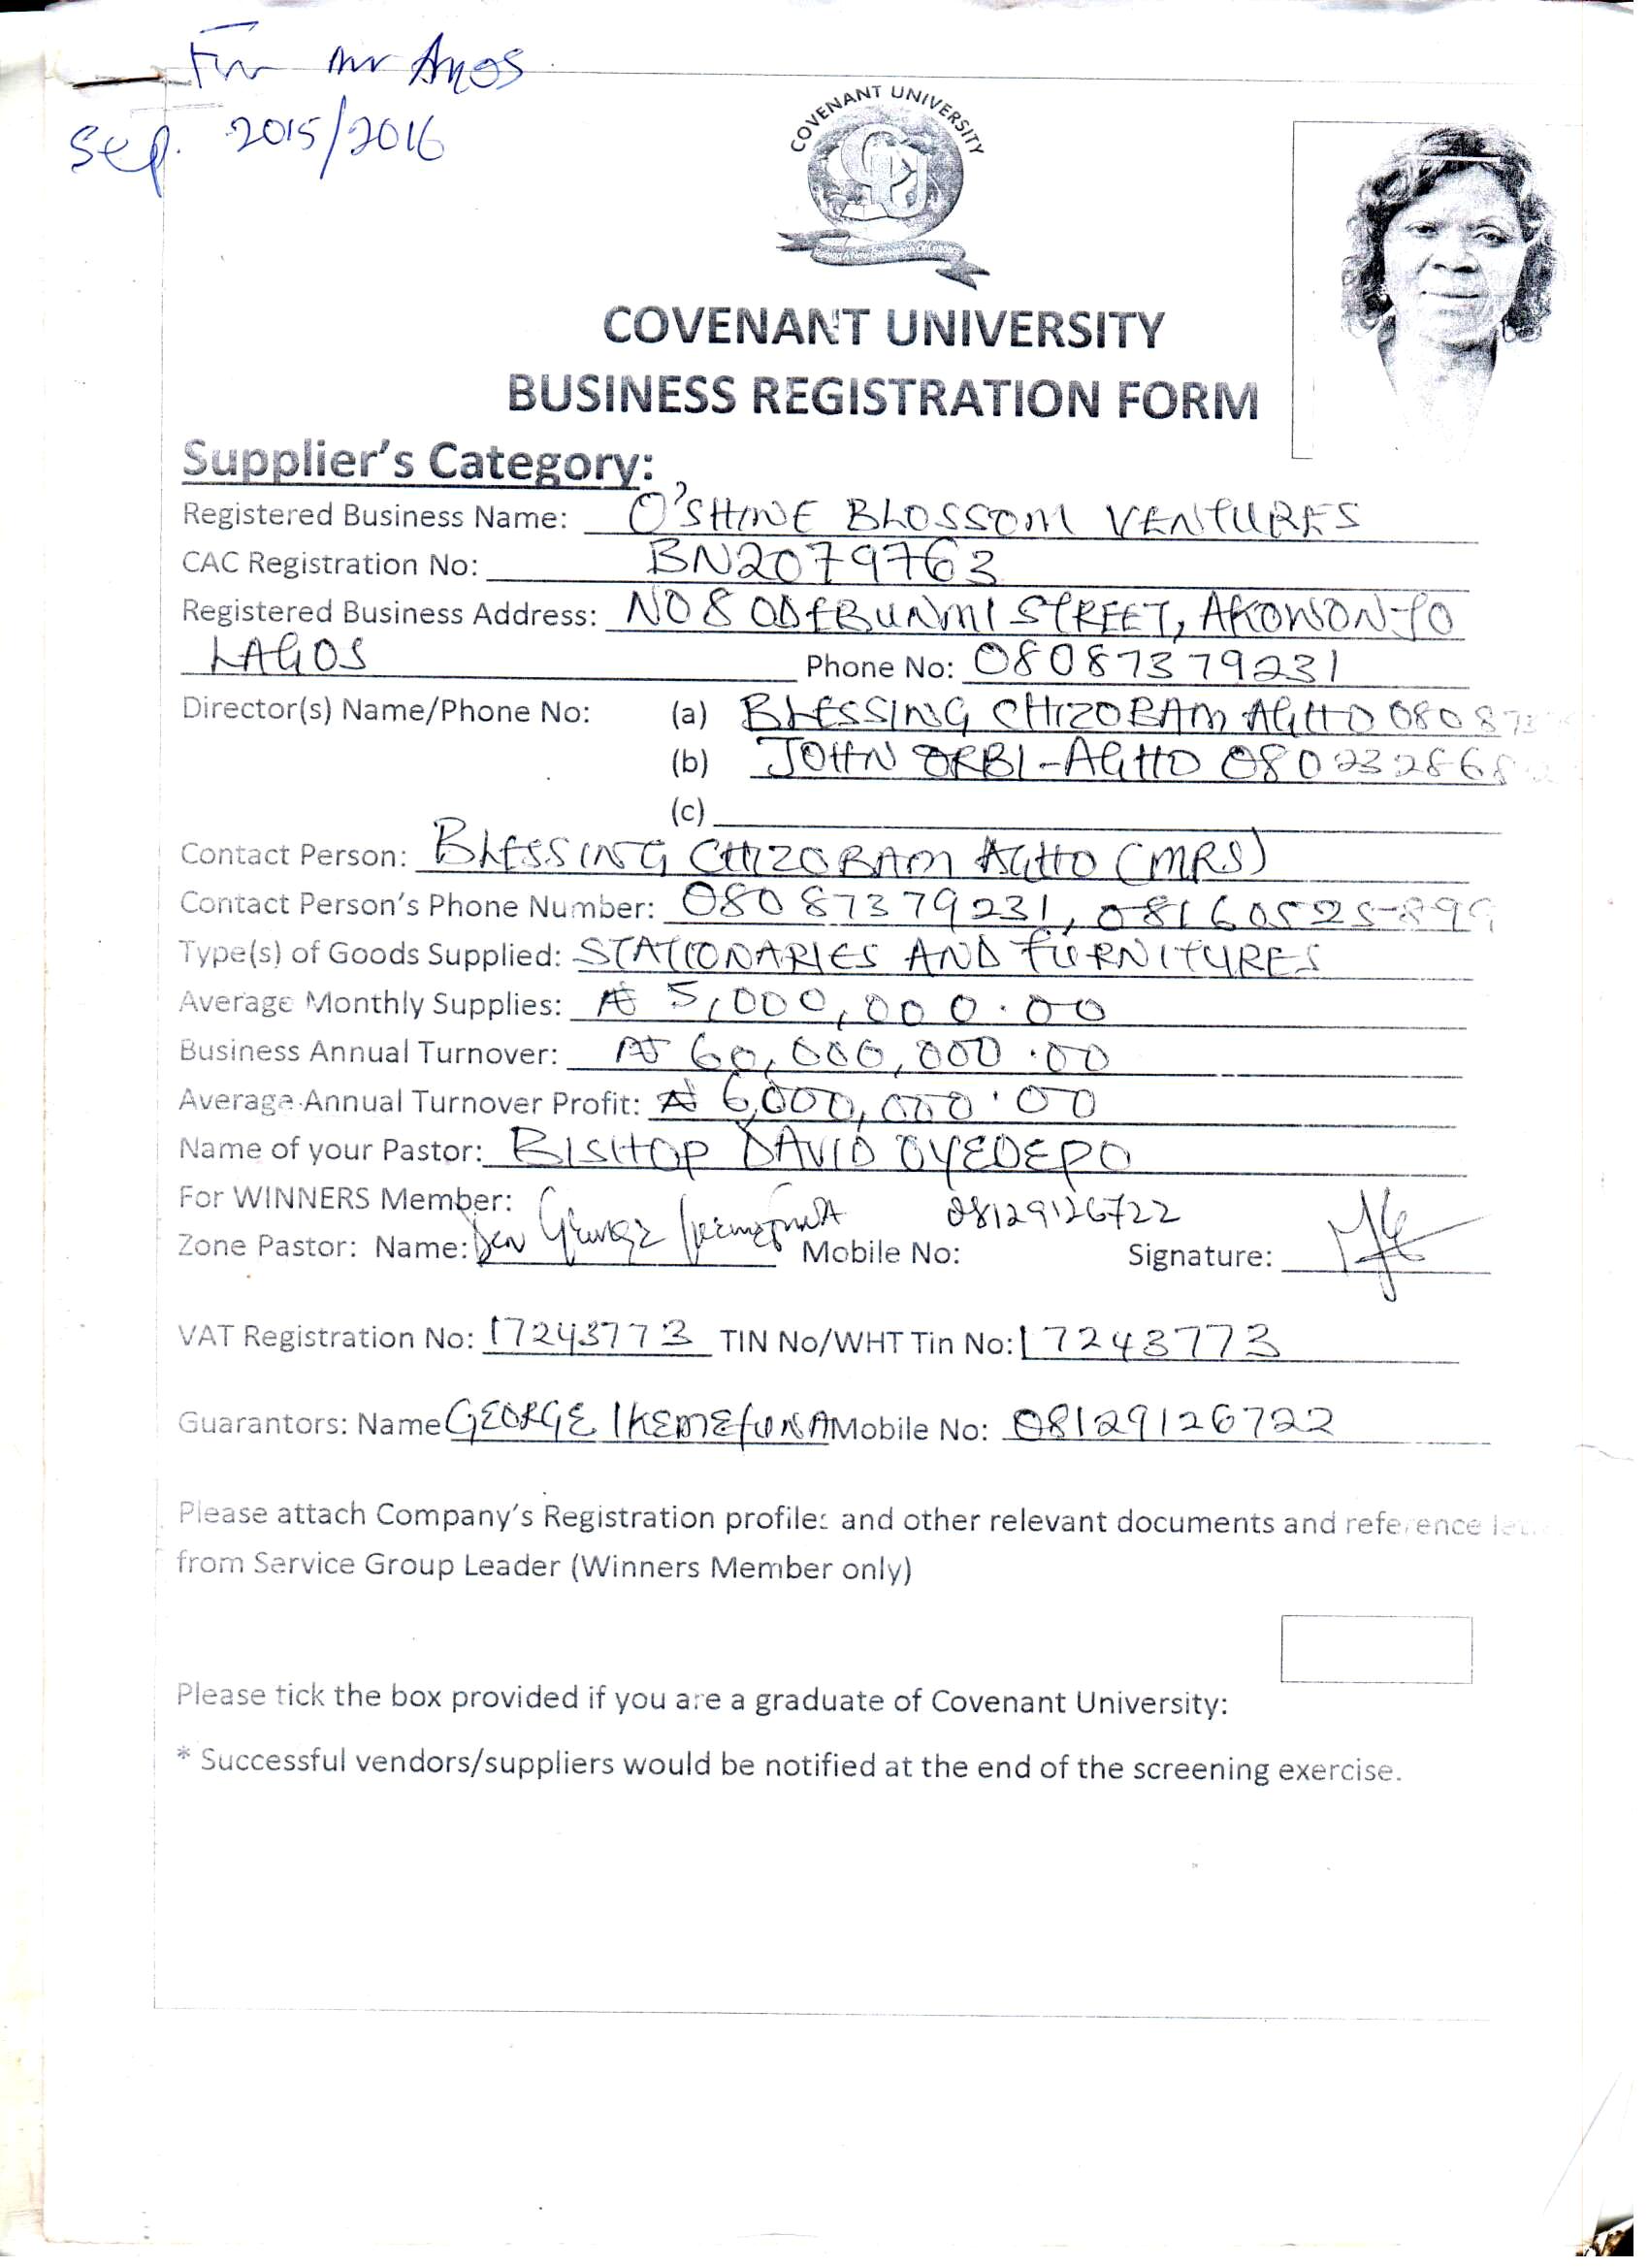 For Mr Amos
Sep. 2015/2016
COVENANT UNIVERSITY
COVENANT UNIVERSITY
BUSINESS REGISTRATION FORM
Supplier's Category:
Registered Business Name: O'SHINE BLOSSOM VENTURES
CAC Registration No: BN2079763
Registered Business Address: NO 8 ODEBUNMI STREET, AKOWONJO
LAGOS Phone No: 08087379231
Director(s) Name/Phone No: (a) BLESSING CHIZOBAM AGHO 080873
(b) JOHN ORBI-AGHO 080232868
(c)
Contact Person: BLESSING CHIZOBAM AGHO (MRS)
Contact Person's Phone Number: 08087379231, 08160525899
Type(s) of Goods Supplied: STATIONARIES AND FURNITURES
Average Monthly Supplies: ₦ 5,000,000.00
Business Annual Turnover: ₦ 60,000,000.00
Average Annual Turnover Profit: ₦ 6,000,000.00
Name of your Pastor: BISHOP DAVID OYEDEPO
For WINNERS Member:
Zone Pastor: Name: George Ikemefuna Mobile No: 08129126722 Signature:
VAT Registration No: 17243773 TIN No/WHT Tin No: 17243773
Guarantors: Name GEORGE IKEMEFUNA Mobile No: 08129126722
Please attach Company's Registration profiles and other relevant documents and reference
from Service Group Leader (Winners Member only)
Please tick the box provided if you are a graduate of Covenant University:
* Successful vendors/suppliers would be notified at the end of the screening exercise.